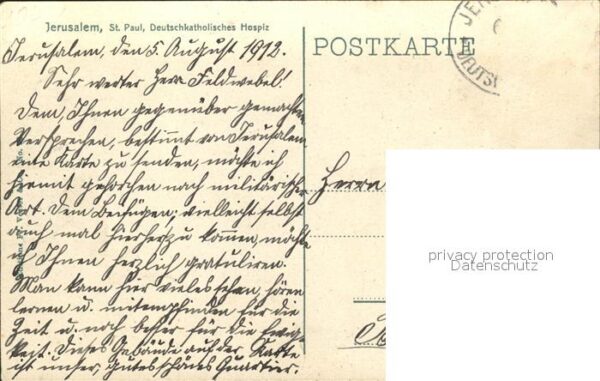 Jerusalem, St. Paul, Deutschkatholisches Hospiz
Jerusalem, den 5. August 1912.
POSTKARTE
Sehr werter Herr Feldwebel!
Dem Ihnen gegenüber gemachten
Versprechen, bestimmt von Jerusalem
eine Karte zu senden, möchte ich
hiermit gehorchen nach militärischer
Art. Dem Beifügen, vielleicht selbst
auch mal hierher zu kommen, möchte
ich Ihnen herzlich gratulieren.
Man kann hier vieles sehen, hören
lernen u. mitempfinden für die
Zeit u. noch besser für die Ewig-
keit. Dieses Gebäude auf der Karte
ist unser gutes schönes Quartier.
Herrn
privacy protection
Datenschutz